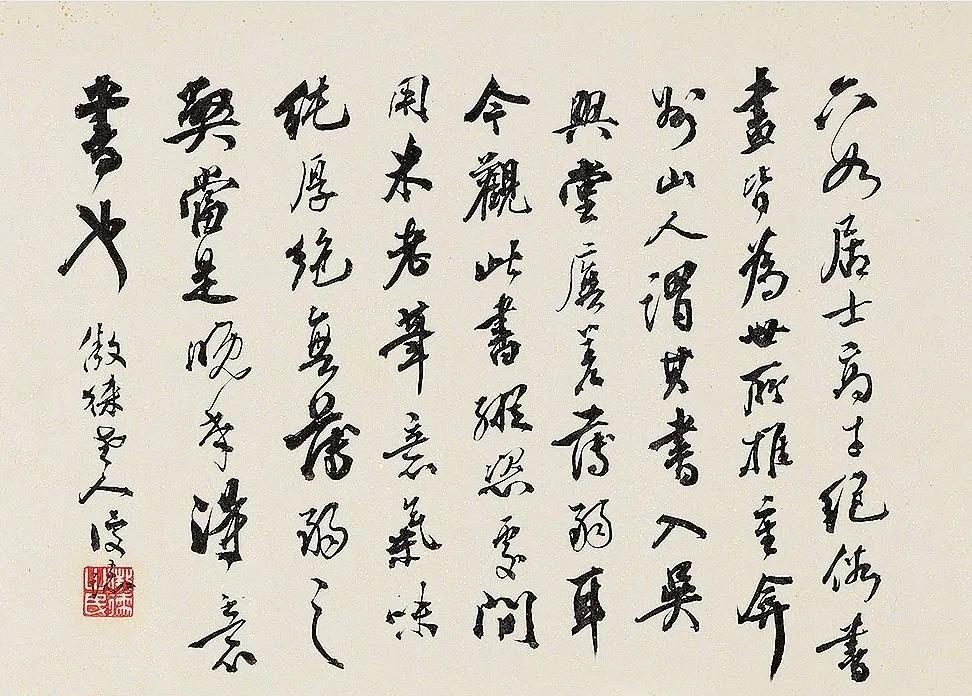 六如居士高才絕俗書
畫皆為世所推重弇
州山人謂其書入吳
興堂廡差薄弱耳
今觀此書縱恣處間
用米老筆意氣味
純厚絕無薄弱之
弊當是晚年得意
書也
傲徠人漫